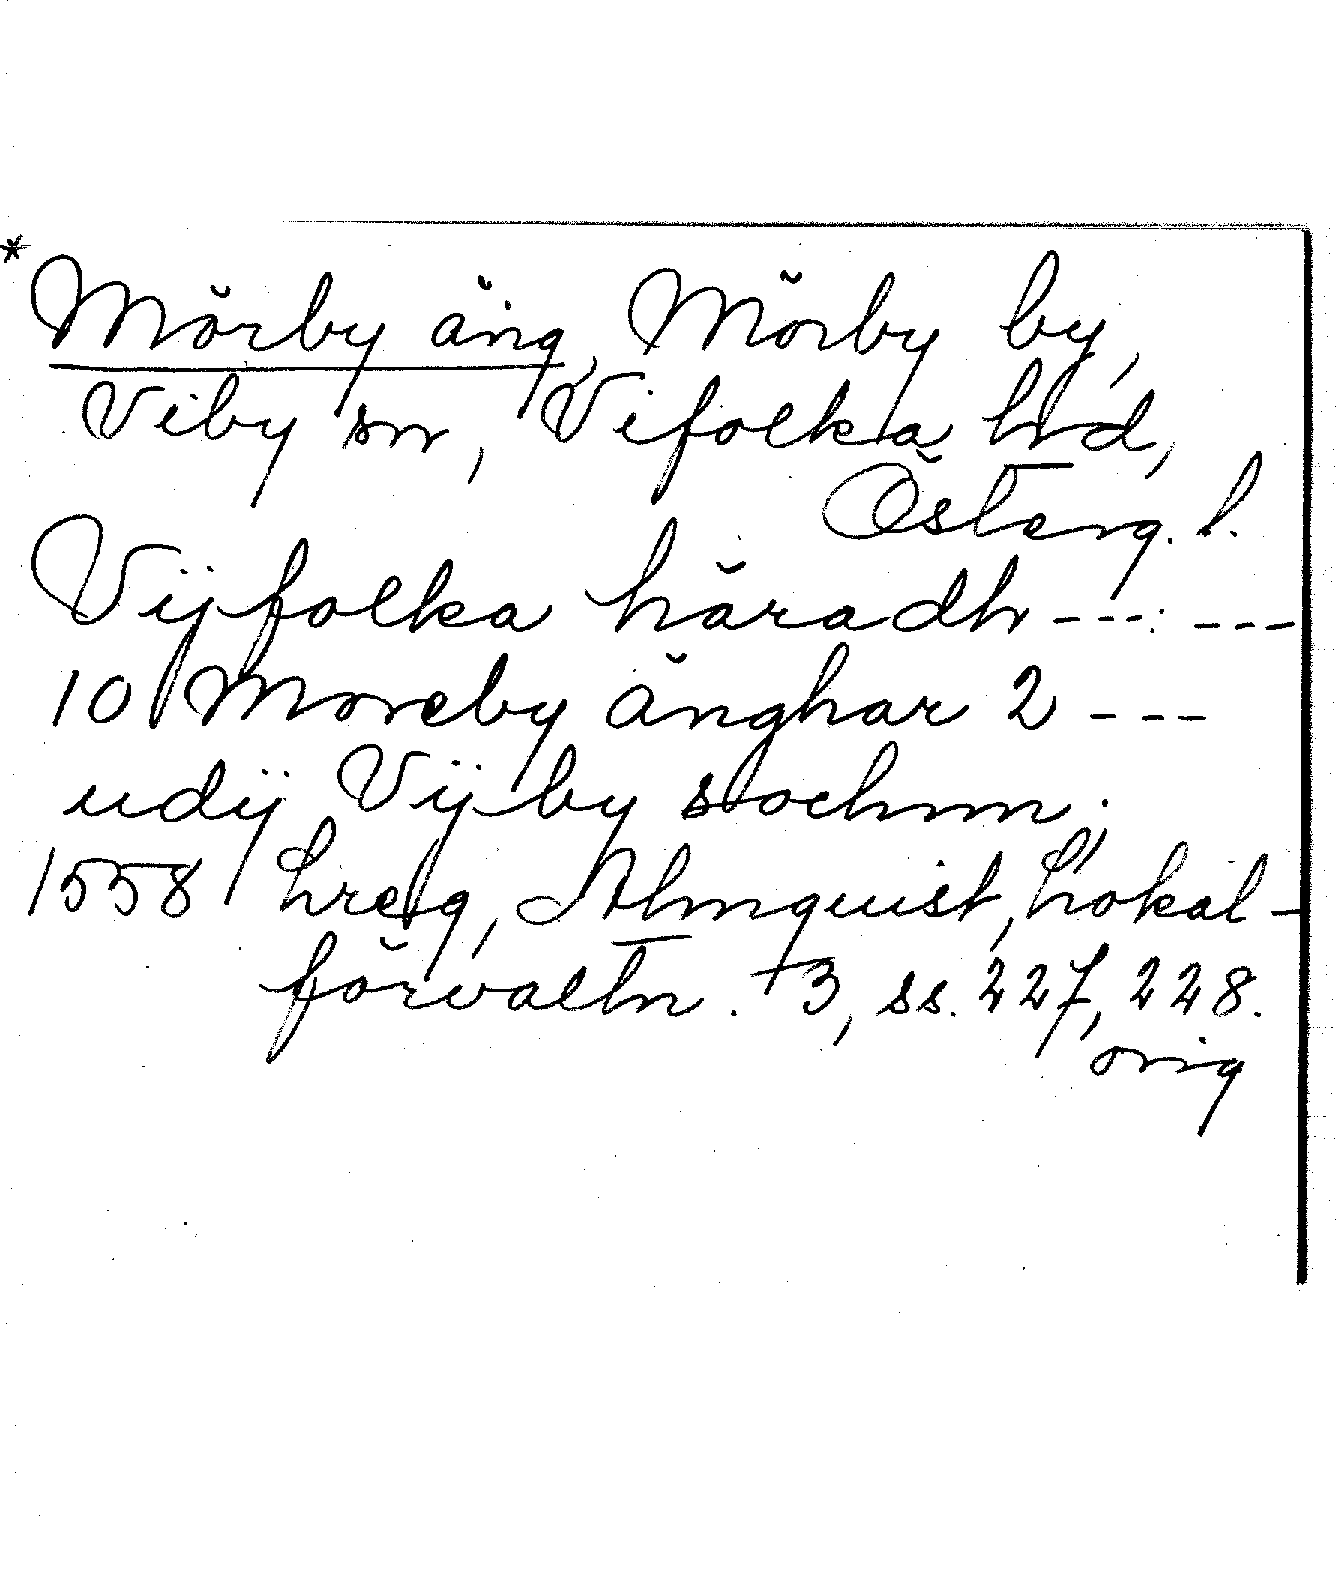 * Mörby äng, Mörby by,
Viby sn, Vifolka hrd,
Österg. l.
Vijfolka häradh ---:---
10 Moreby änghar 2 ---
udij Vijby sochnn.
1558 Lreg, Almquist, Lokal-
förvaltn. 3, ss. 227, 228.
orig